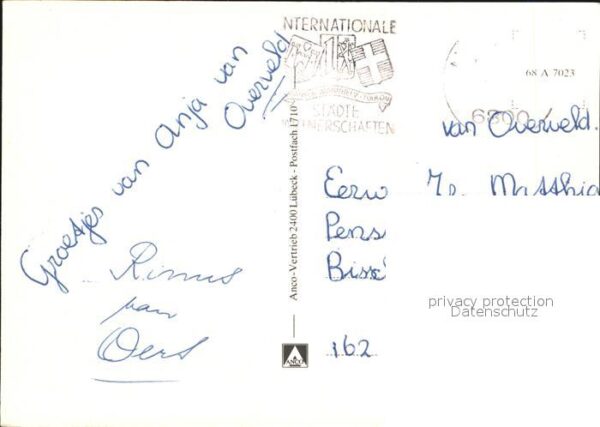 Groetjes van Anja van
Overveld
Rinus
van
Oers
Anco-Vertrieb 2400 Lübeck - Postfach 1710
ANCO
NTERNATIONALE
STÄDTE
TNERSCHAFTEN
68 A 7023
6800
van Overveld.
Eerw Mo. Matthia
Pens
Biss
162
privacy protection
Datenschutz